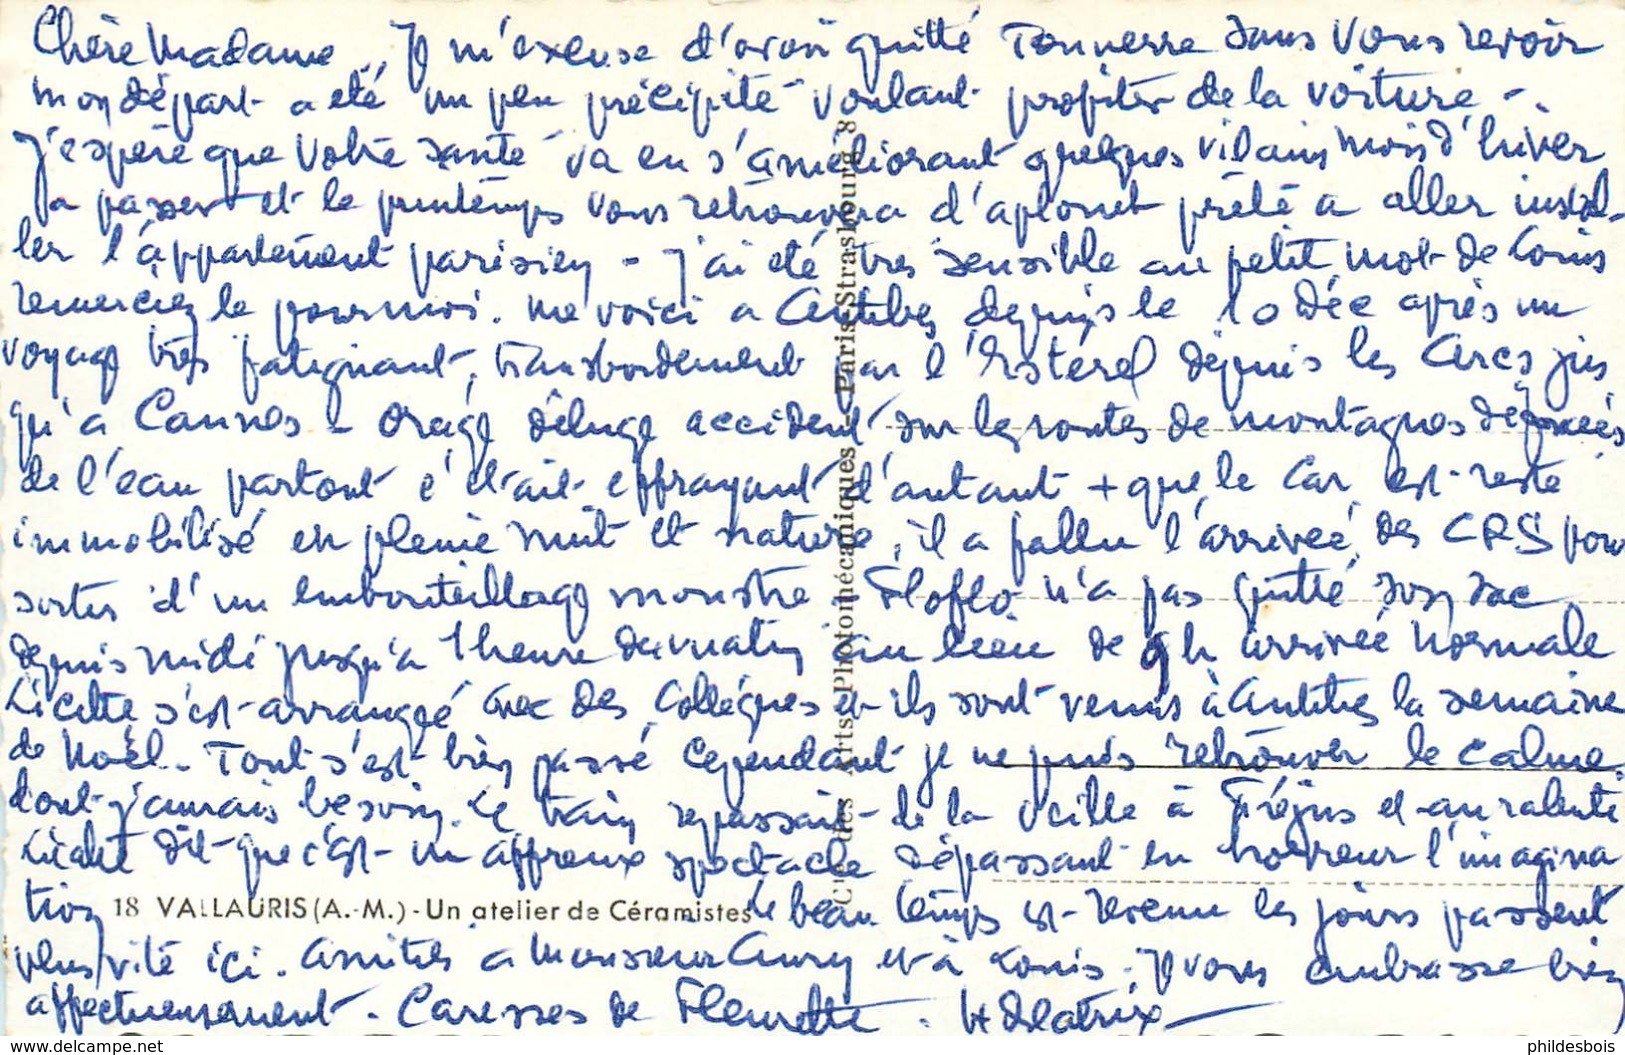 Chère Madame, Je m'excuse d'avoir quitté Tonnerre sans vous revoir
mon départ a été un peu précipité voulant profiter de la voiture -.
J'espère que votre santé va en s'améliorant quelques vilains mois d'hiver
à passer et le printemps vous retrouvera d'aplomb prête à aller instal-
ler l'appartement parisien - j'ai été très sensible au petit mot de Louis
remerciez le pour moi. me voici à Antibes depuis le 10 Déc après un
voyage très fatigant, transbordement par l'Estérel depuis les Arcs jus
qu'à Cannes - orage déluge accident sur les routes de montagnes défoncées
de l'eau partout c'était effrayant d'autant + que le car est resté
immobilisé en pleine nuit et nature, il a fallu l'arrivée des CRS pour
sortir d'un embouteillage monstre - Floflo n'a pas quitté son sac
depuis midi jusqu'à 1 heure du matin au lieu de 9 h arrivée normale
Licette s'est arrangée avec des collègues et ils sont venus à Antibes la semaine
de Noël. Tout s'est bien passé cependant je ne puis retrouver le calme
dont j'aurais besoin. Le train repassait de la veille à Fréjus et au ralenti
Licette dit que c'est un affreux spectacle dépassant en horreur l'imagina
tion
18 VALLAURIS (A.-M.) - Un atelier de Céramistes
le beau temps est revenu les jours passent
plus vite ici. Amitiés à Monsieur Aury et à Louis. Je vous embrasse bien
affectueusement. Caresses de Fleurette. H Delatrix
Cie des Arts Photomécaniques - Paris-Strasbourg 8
www.delcampe.net
phildesbois